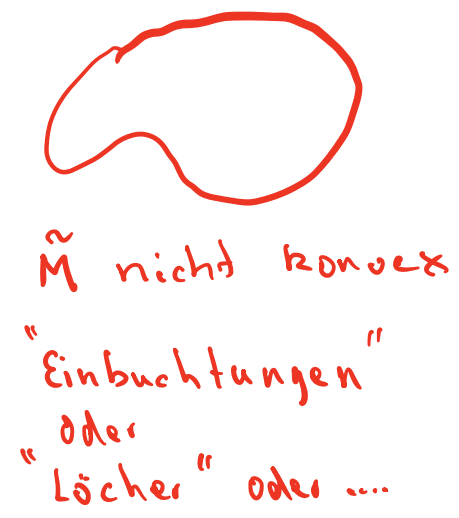 M̃ nicht konvex
"Einbuchtungen"
oder
"Löcher" oder ....